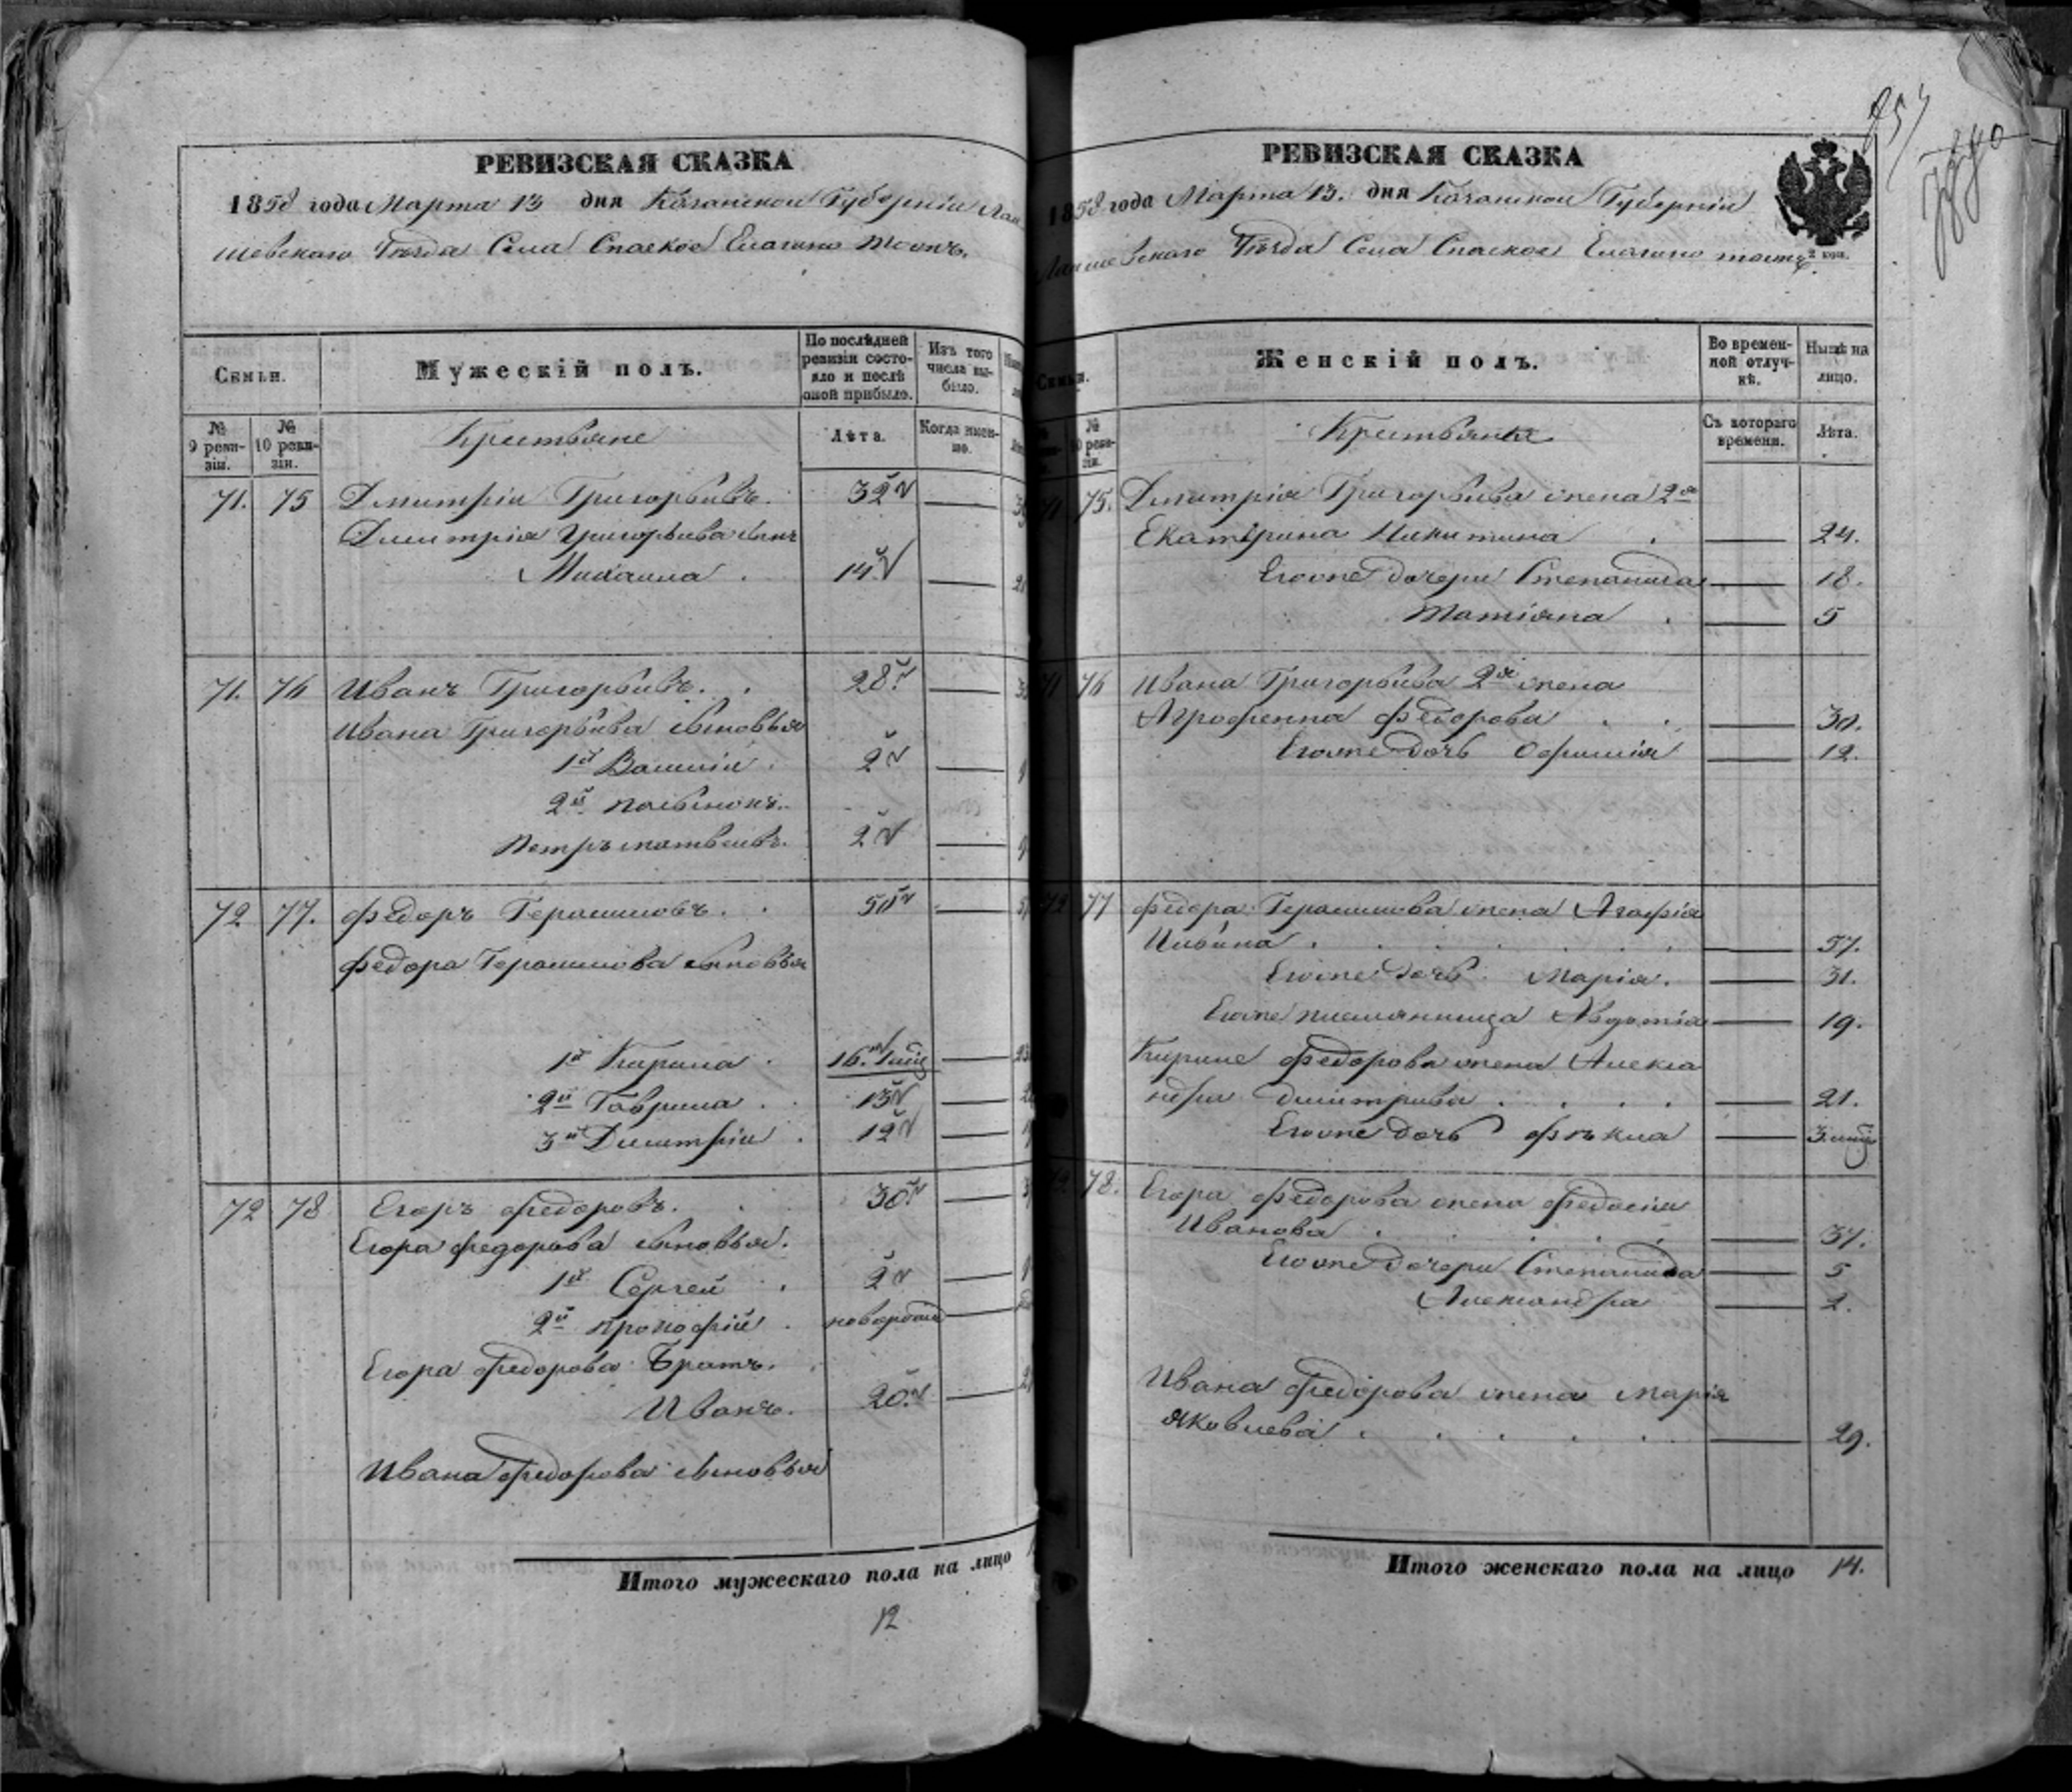 РЕВИЗСКАЯ СКАЗКА
1858 года Марта 13 дня Казанской Губерніи Лаи
шевскаго Уѣзда Села Спаское Елагино тожъ.
Семьи.
Мужескій полъ.
По послѣдней ревизіи состояло и послѣ оной прибыло.
Изъ того числа выбыло.
№ 9 ревизіи.
№ 10 ревизіи.
Крестьяне
Лѣта.
Когда именно.
71. 75 Дмитрій Григорьевъ. 32
Дмитрія Григорьева сынъ
Михаила. 14
71. 76 Иванъ Григорьевъ. 28
Ивана Григорьева сыновья
1й Василій. 2
2й
Петръ Матвеевъ. 2
72 77. Федоръ Герасимовъ. 50
Федора Герасимова сыновья
1й Кирила. 16.
2й Гаврила. 13
3й Дмитрій. 12
72 78 Егоръ Федоровъ. 30
Егора Федорова сыновья.
1й Сергей. 2
2й Прокофій. новорожд
Егора Федорова братъ.
Иванъ. 20.
Ивана Федорова сыновья
Итого мужескаго пола на лицо
12
РЕВИЗСКАЯ СКАЗКА
1858 года Марта 13. дня Казанской Губерніи
Лаишевскаго Уѣзда Села Спаское Елагино тожъ.
2 коп.
Семьи.
Женскій полъ.
Во временной отлучкѣ.
Нынѣ на лицо.
№ 10 ревизіи.
Крестьянки
Съ котораго времени.
Лѣта.
71 75. Дмитрія Григорьева жена 2я
Екатерина Никитина 24.
Егоже дочери Степанида 18.
Татіяна 5
71 76 Ивана Григорьева 2я жена
Агрофенна Федорова 30.
Егоже дочь Офимія 12.
72 77 Федора Герасимова жена Агафія
Ильина 57.
Егоже дочь Марія. 31.
Егоже племянница Авдотія 19.
Кириле Федорова жена Алекса
ндра Дмитріева 21.
Егоже дочь Фекла 3
72 78. Егора Федорова жена Федосия
Иванова 37.
Егоже дочери Степанида 5
Александра 2.
Ивана Федорова жена Марія
Яковлева 29.
Итого женскаго пола на лицо 14.